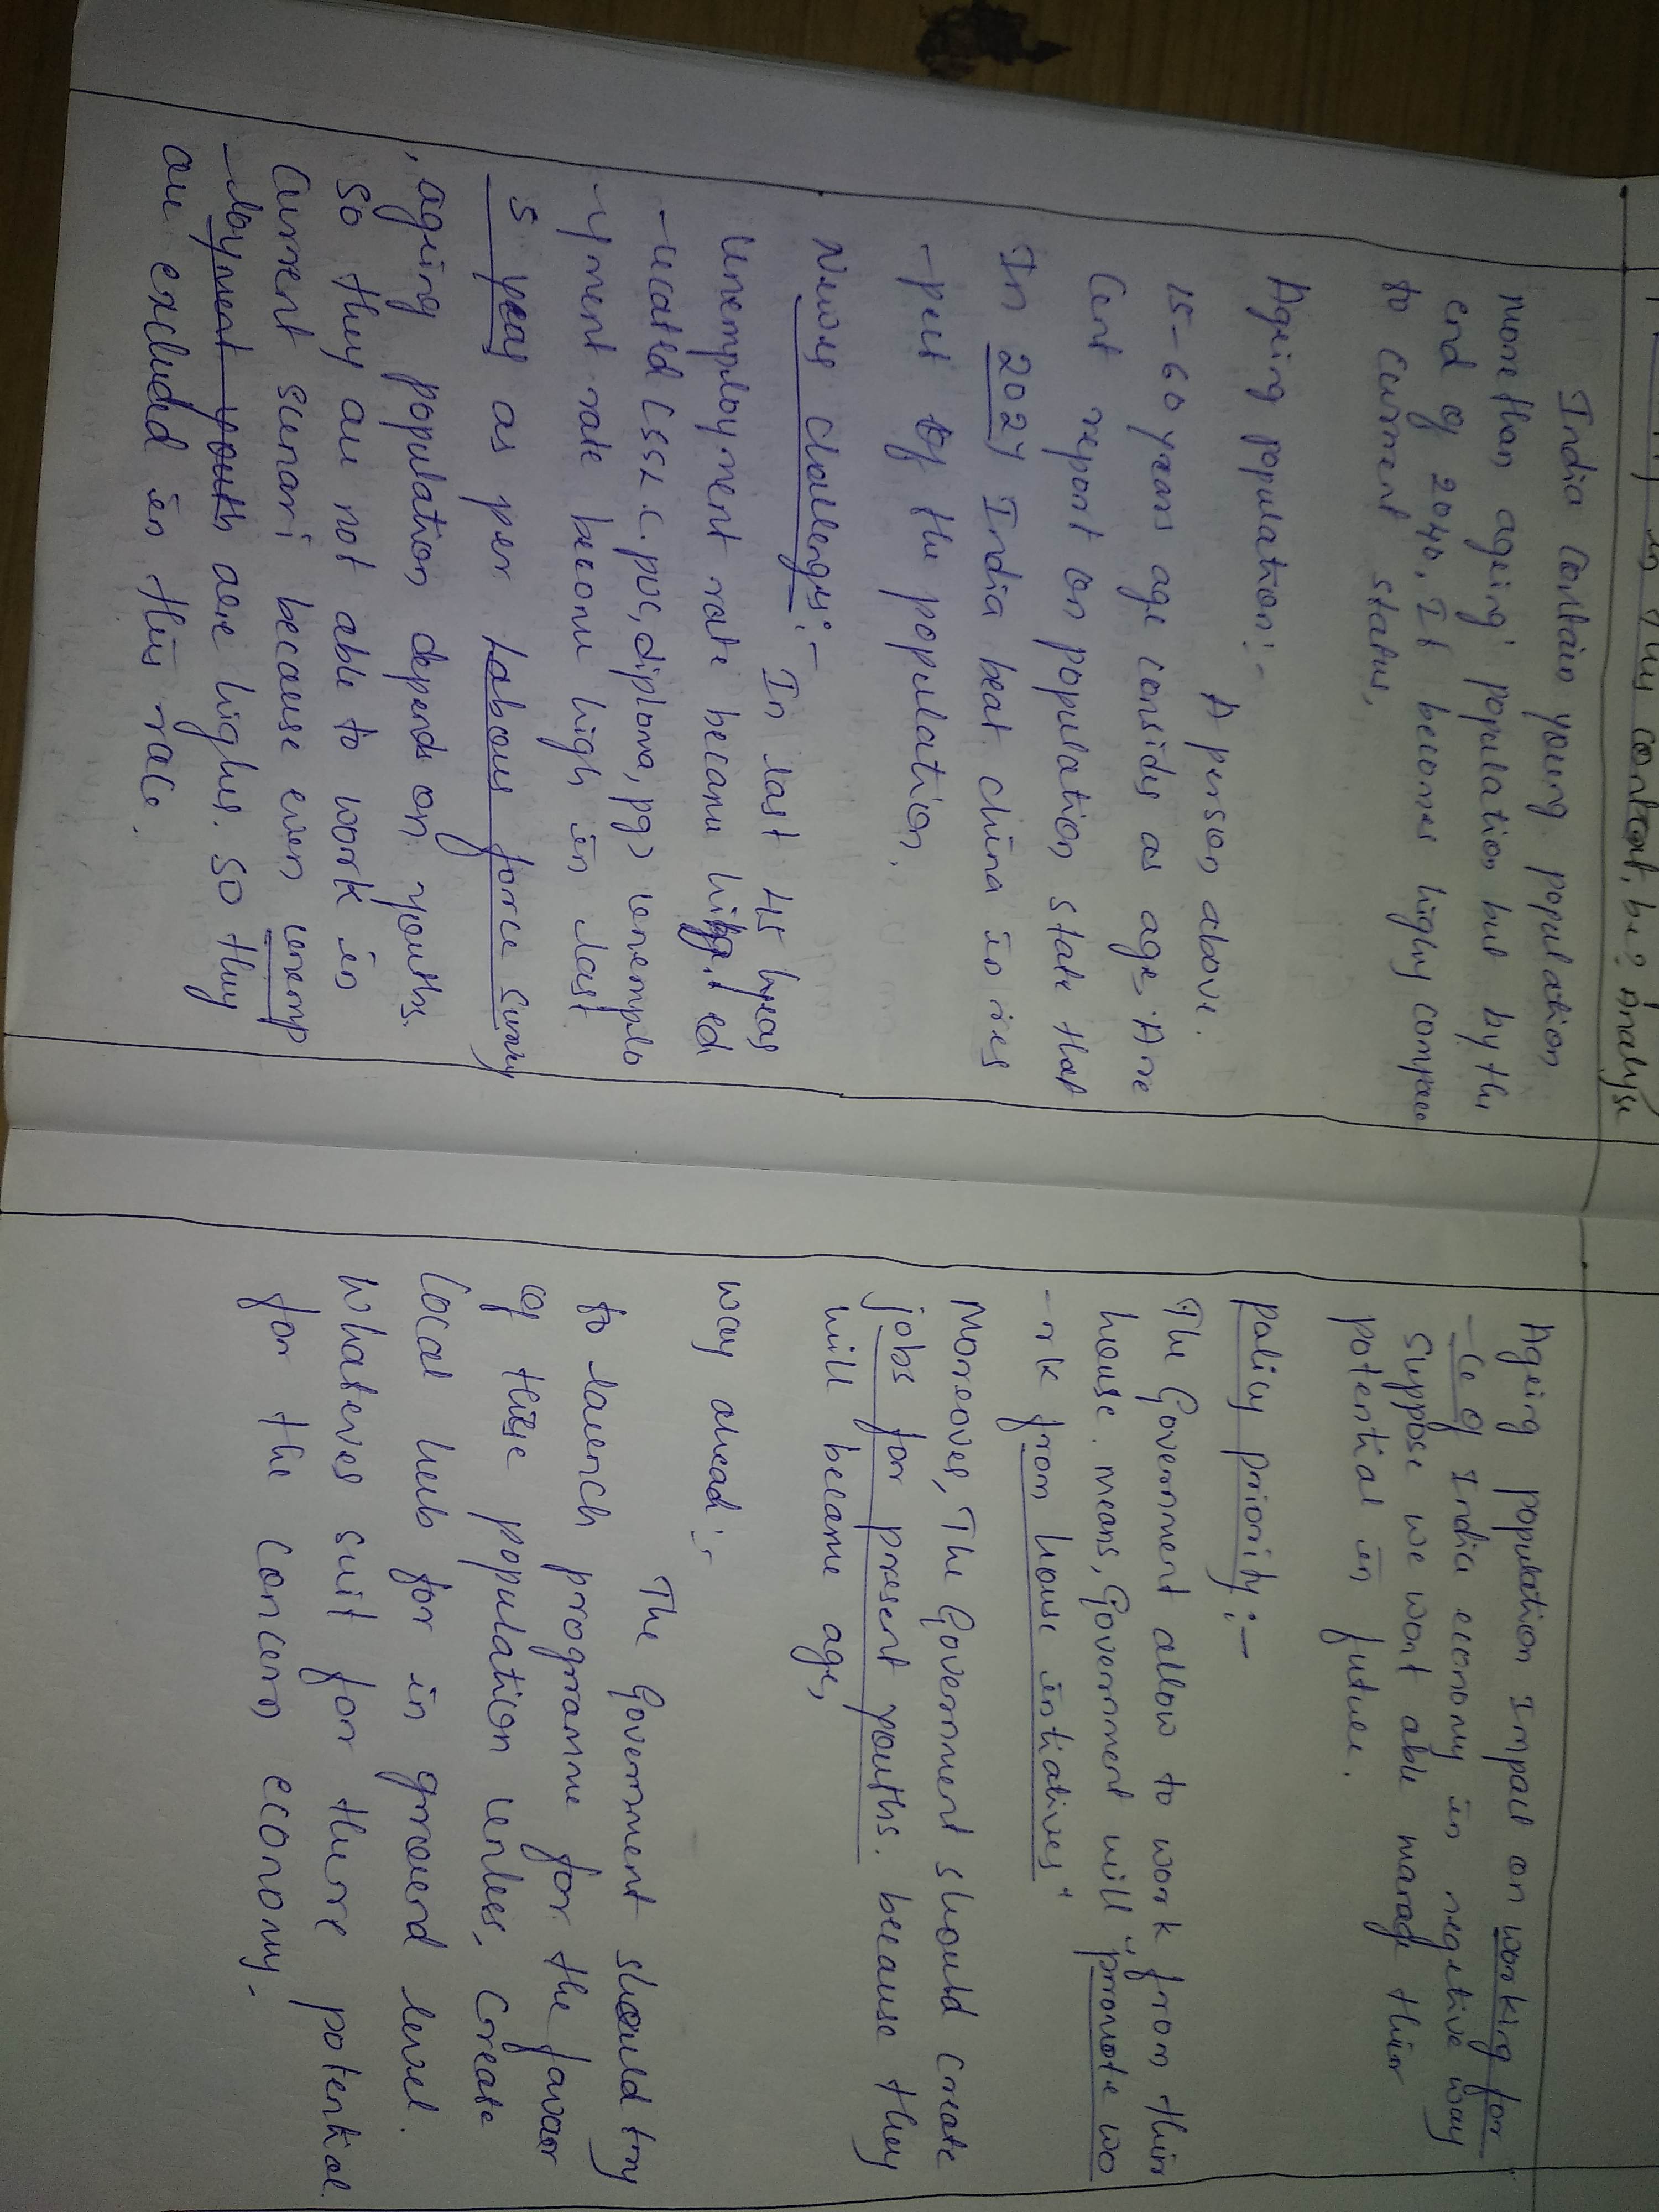 in this context, be? Analyse
India Contain young population
more than ageing population but by the
end of 2040, It becomes highly compare
to current status,
Ageing population:-
A person above
15-60 years age consider as age. A re
Cent report on population state that
In 2027 India beat china in res
-pect of the population.
Newer challenges:-
In last 45 years
Unemployment rate became high. ed
-ucated (SSLC, puc, diploma, pg) unemplo
-yment rate become high in last
5 years as per Labour force survey
, ageing population depends on youths.
so they are not able to work in
Current scenari because even unemp
-loyment youth are higher. so they
are excluded in this race.
Ageing population Impact on working for
-ce of India economy in negetive way
Suppose we wont able manage thier
potential in future.
Policy priority:-
The Government allow to work from thier
house. means, Government will "promote wo
-rk from house intiatives"
Moreover, The Government should create
jobs for present youths. because they
will became age,
way ahead:-
The Government should try
to launch programme for the favour
of these population unless, create
Local hub for in ground level.
Whatever suit for there potential
for the concern economy.